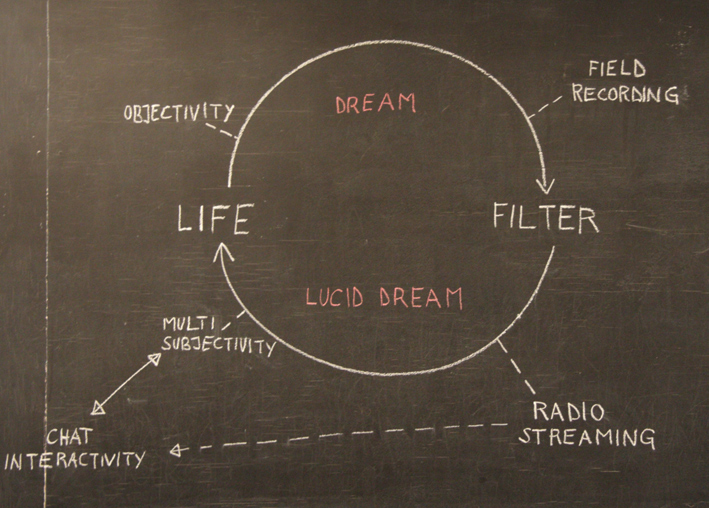 FIELD
RECORDING
OBJECTIVITY
DREAM
LIFE
FILTER
LUCID DREAM
MULTI
SUBJECTIVITY
RADIO
STREAMING
CHAT
INTERACTIVITY